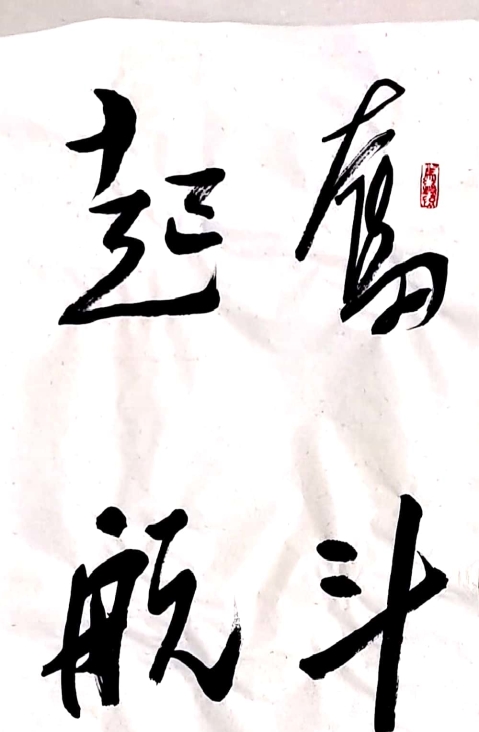 奮斗
起航